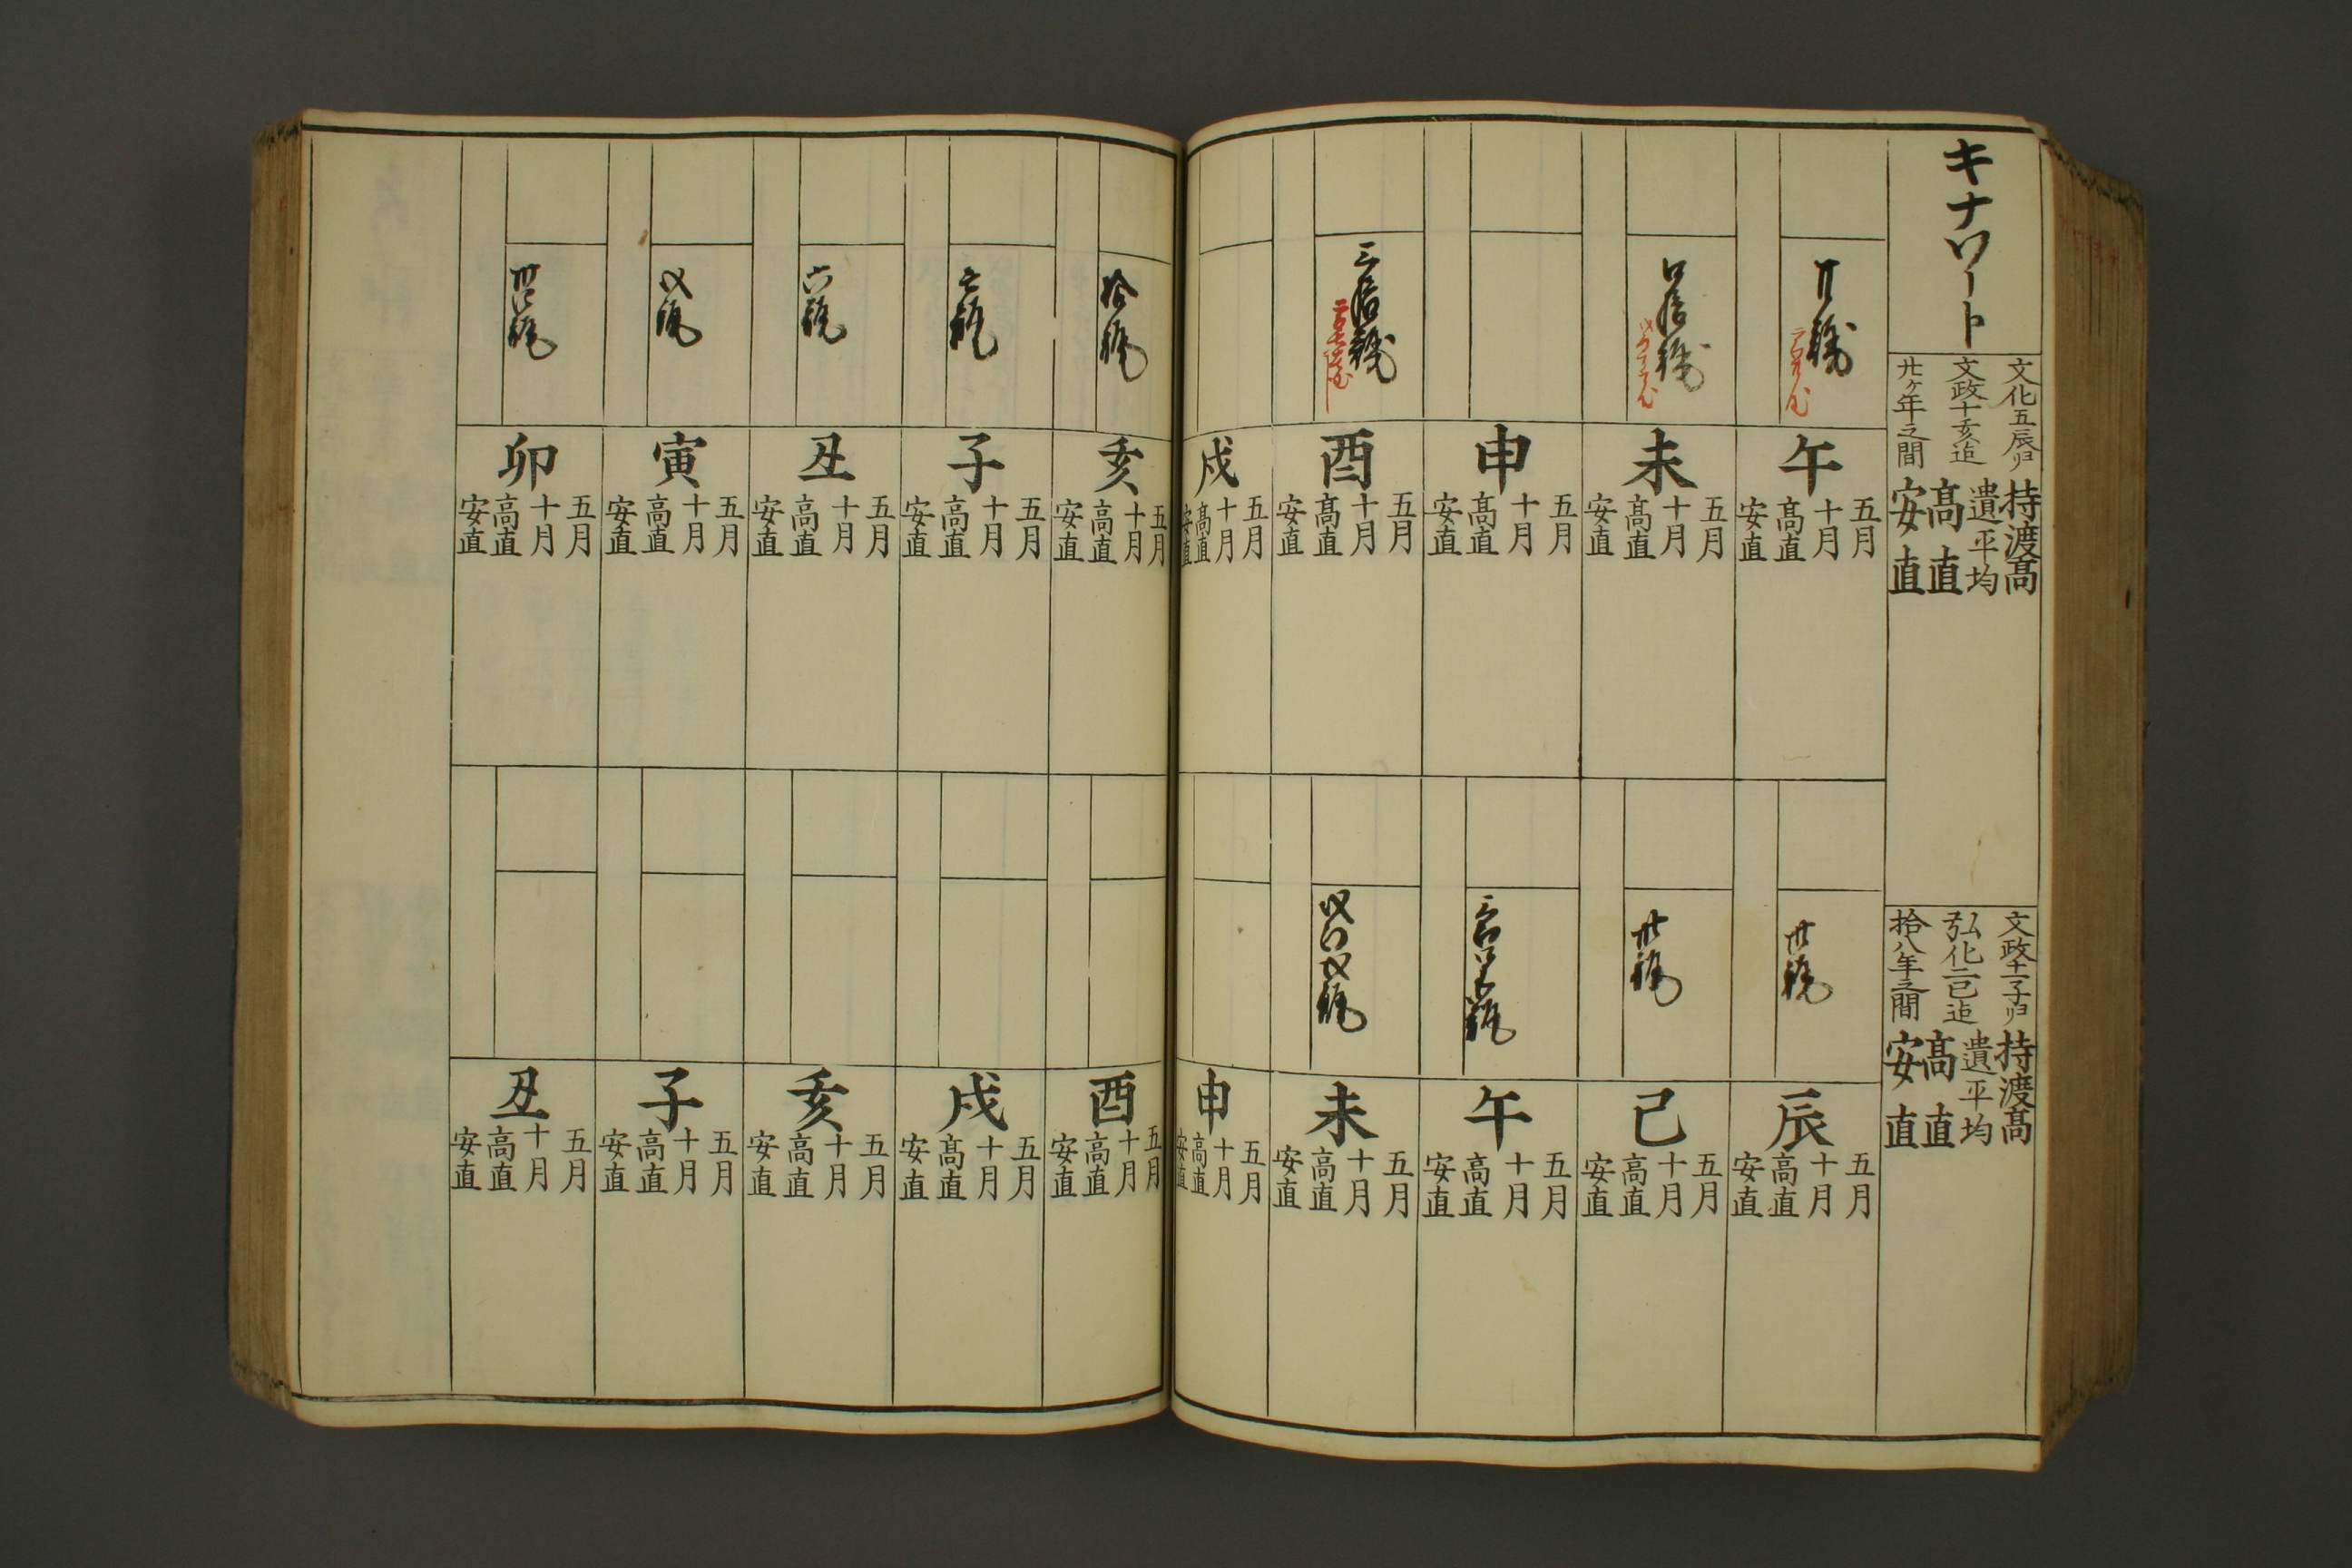 キナソート
文化五辰ヨリ
文政十亥迠
廿ケ年之間
持渡髙
遺平均
髙直
安直
午
五月
十月
髙直
安直
未
五月
十月
髙直
安直
申
五月
十月
髙直
安直
酉
五月
十月
髙直
安直
戌
五月
十月
髙直
安直
拾瓶
亥
五月
十月
高直
安直
七瓶
子
五月
十月
高直
安直
六瓶
丑
五月
十月
高直
安直
寅
五月
十月
高直
安直
卯
五月
十月
高直
安直
文政十一子ヨリ
弘化二巳迠
拾八年之間
持渡髙
遺平均
髙直
安直
廿瓶
辰
五月
十月
高直
安直
廿瓶
巳
五月
十月
高直
安直
午
五月
十月
高直
安直
未
五月
十月
高直
安直
申
五月
十月
高直
安直
酉
五月
十月
高直
安直
戌
五月
十月
髙直
安直
亥
五月
十月
高直
安直
子
五月
十月
高直
安直
丑
五月
十月
高直
安直